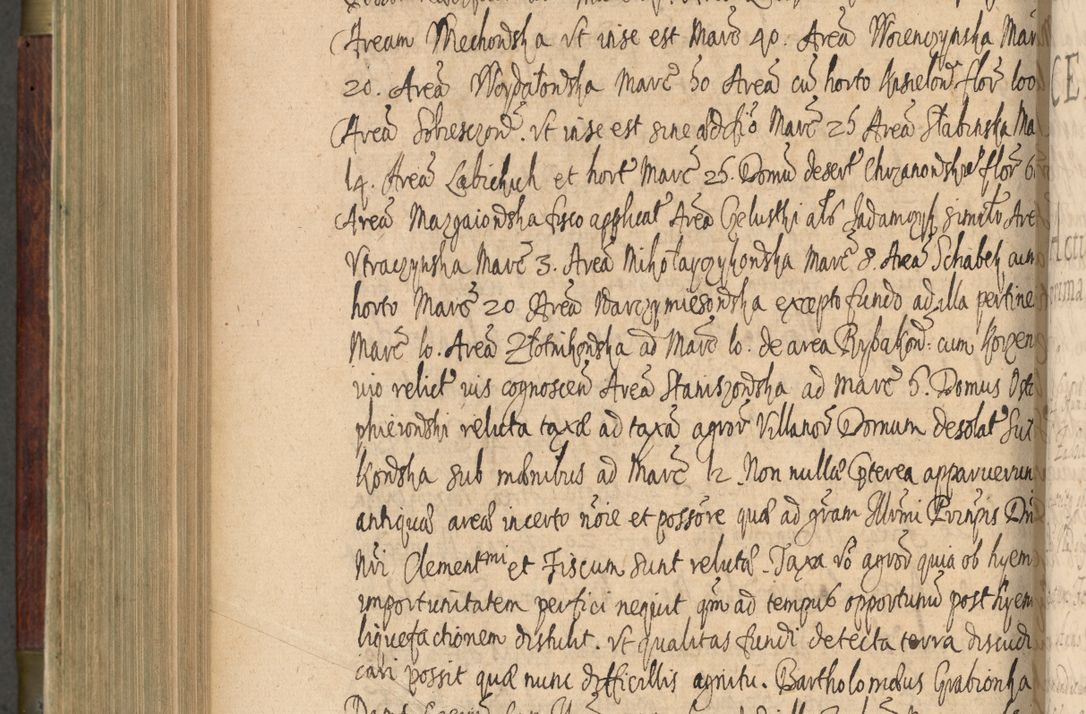 Aream Miechowska vt inse est Marc 40. Areã Worenczynska Mar
20. Areã Woydatowska Marc 30 Areã cũ horto Kisielow flor 100
Areã Sobieszow. vt inse est sine ædifio Marc 25 Areã Stabinska Ma
14. Areã Labichich et hort Marc 25. Domũ desert Chrzanowskie flor 6
Areã Mazgaiowska fisco applicat Areã Czelustki als Jadamczyk similr Are
Vtraczynska Marc 3. Areã Mikołayczykowska Marc 8. Areã Schabek cum
horto Marc 20 Areã Warczymiesowska excepto fundo ad illa pertine
Marc 10. Areã Złotnikowska ad Marc 10. de area Rybakow. cum Korzen
vio relict vis cognoscen Areã Staniszowska ad Marc 5. Domus Oste
phierowski relicta taxæ ad taxã agror Villanor Domum desolat Sut
kowska sub manibus ad Marc 12. Non nullæ Cpterea apparuerun
antiquæ areæ incerto nõie et possõre quæ ad gram Illrmi Prinpis Dni
Nri Clementmi et Fiscum sunt relictæ. Taxa vo agror quia ob hyem
importunitatem perfici nequit qm ad tempus opportunũ post hyem
liquefactionem distulit. vt qualitas fundi detecta terra diiudi
cari possit quæ nunc difficillis agnitu. Bartholomæus Grabionka